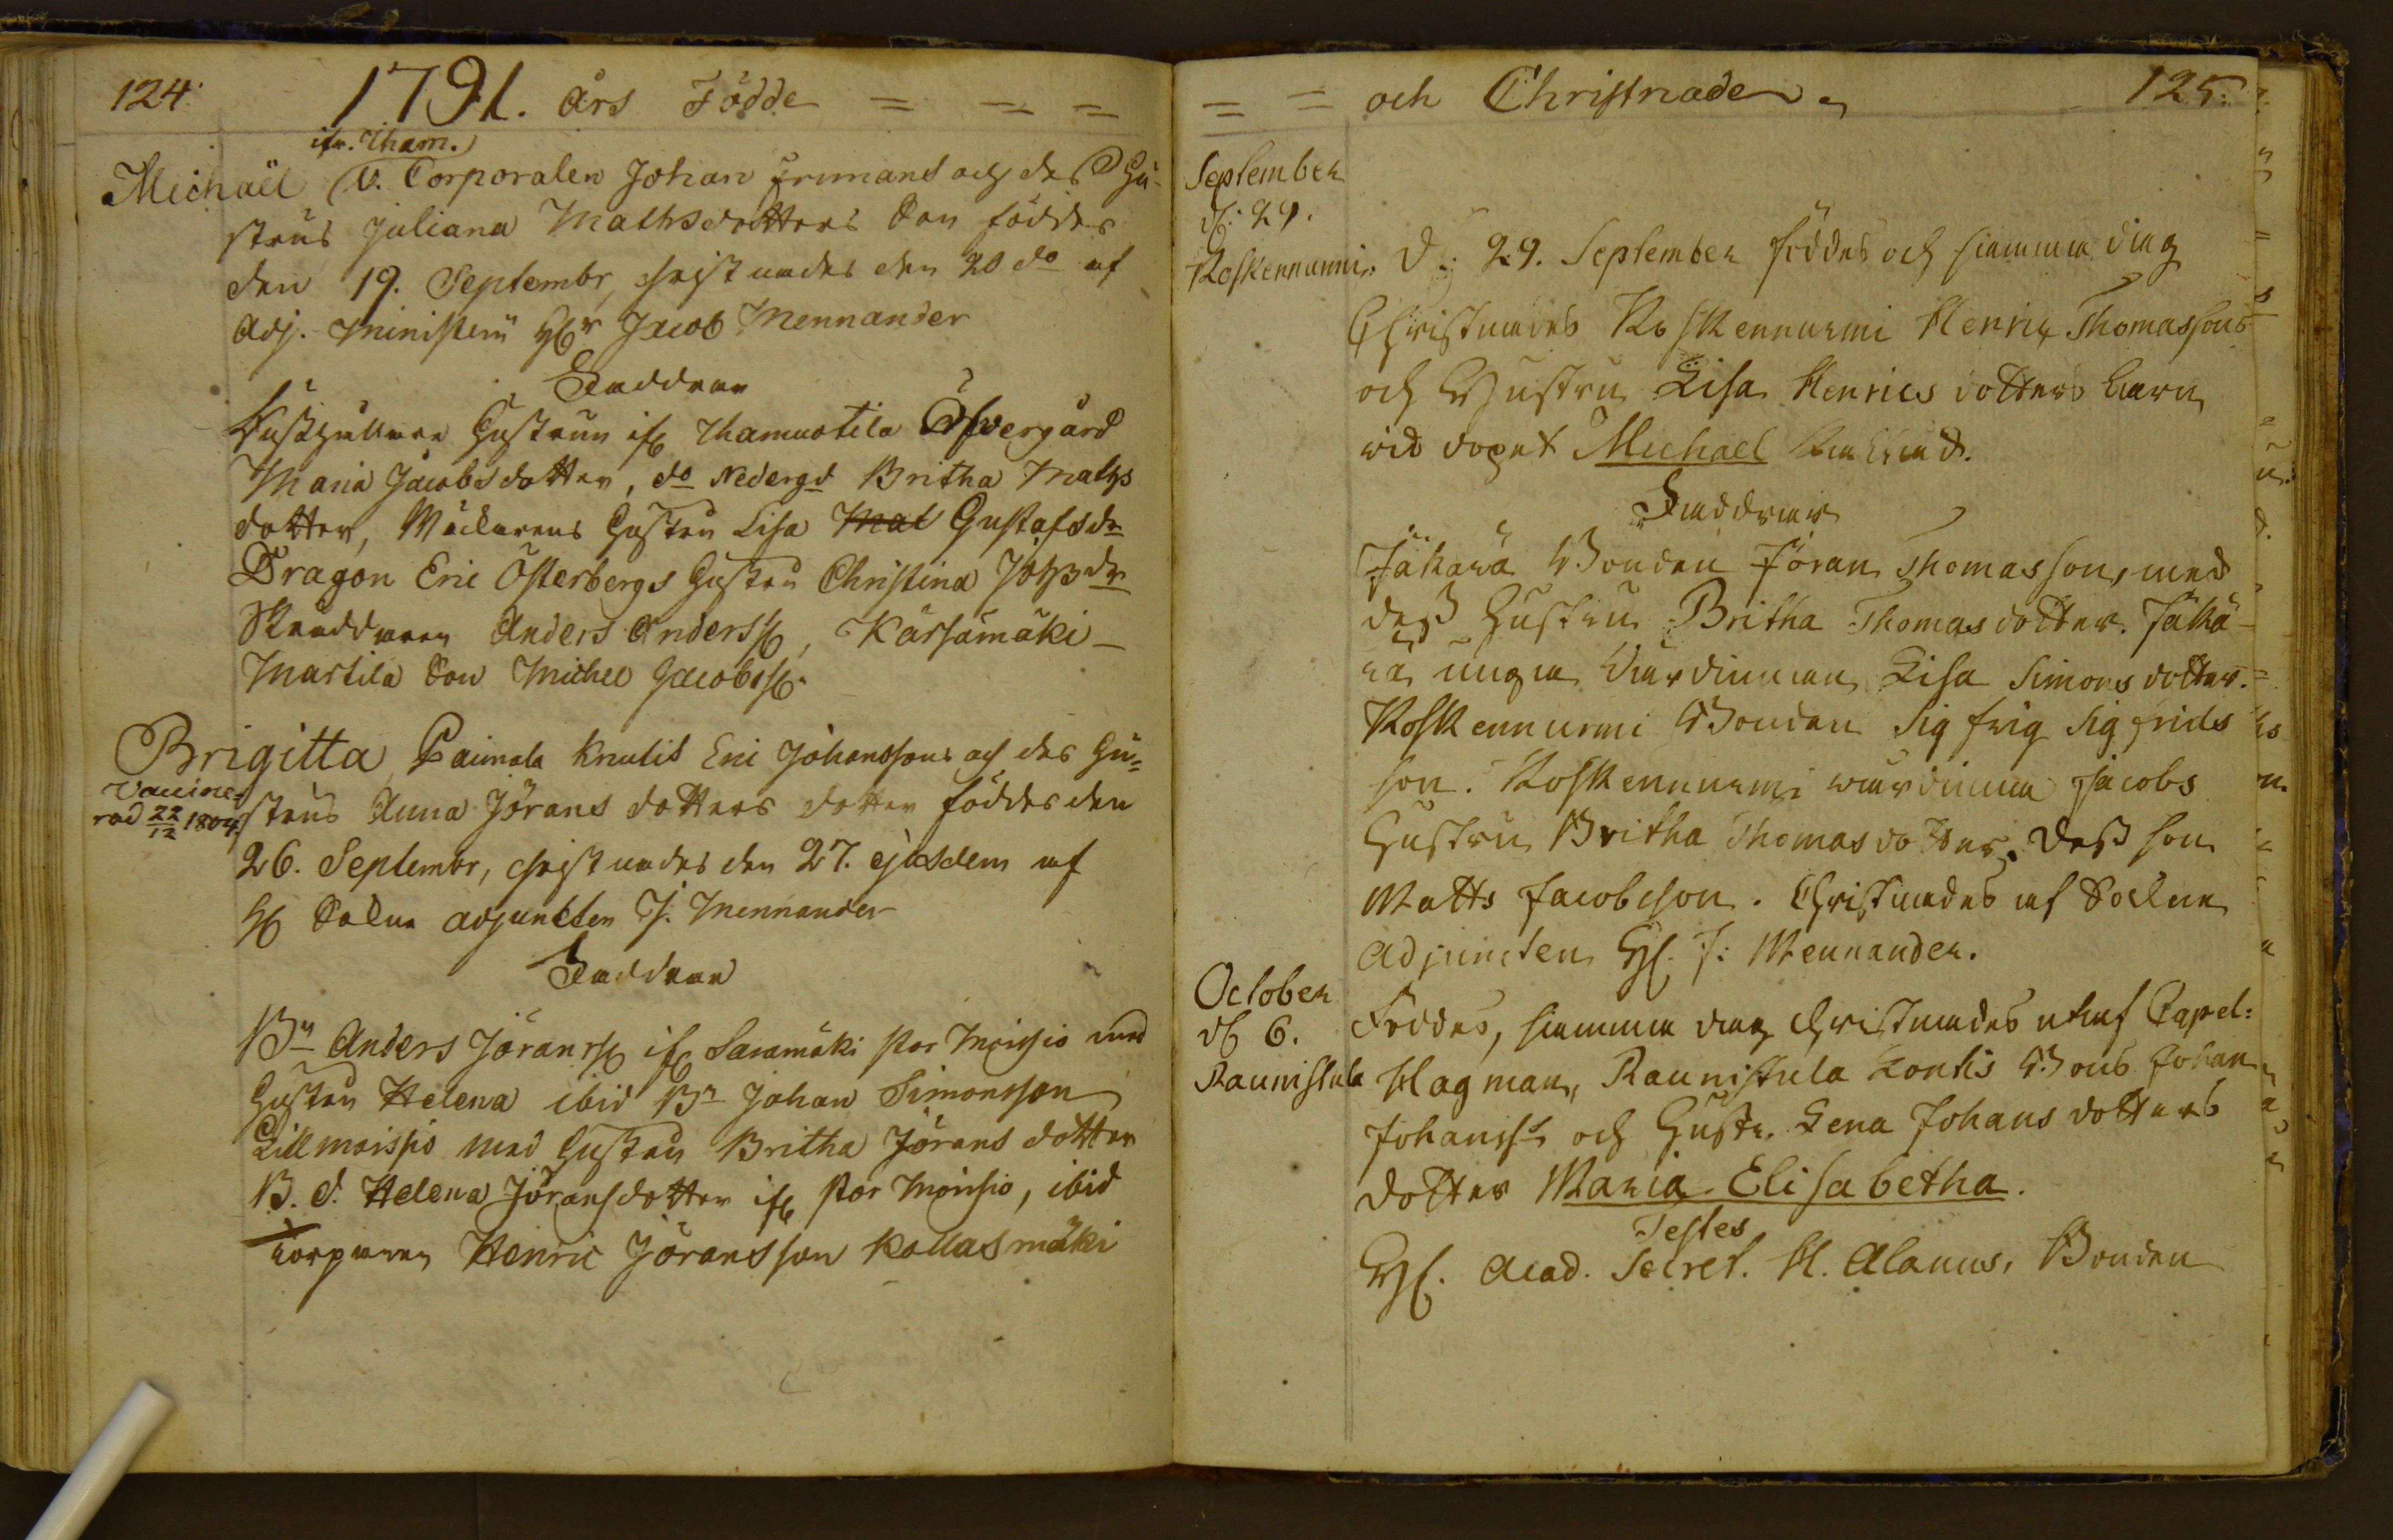 124. 1791. års Födde = = =
ifr. Tham.
Michaël V. Corporalen Johan Frimans och des Hu-
strus Juliana Mathsdotters Son föddes
den 19. Septembr, christnades den 20 do af
Adj. Ministerii Hr Jacob Mennander
Faddrar
Hustrun ifr Thamuotila Öfvergård
Maria Jacobsdotter, do Nedergd Britha Mathsdotter
dotter, Hustru Lisa Mat Gustafsdr
Dragon Eric Österbergs Hustru Christina Johsdr
Skräddaren Anders Anderss, Kärsämäki
Martila Son Michel Jacobss.
Brigitta Paimala Knutis Eric Johanssons och des Hu=
Vaccine-
rad 22/12 1804
strus Anna Jörans dotters dotter föddes den
26. Septembr, christnades den 27. ejusdem af
H Sokne adjuncten J. Mennander
Faddrar
Bn Anders Jöranss ifr Saramäki stor Moisio med
Hustru Helena ibid Bn Johan Simonsson
Lillmoisio med Hustru Britha Jörans dotter
B. d. Helena Jöransdotter ifr stor Moisio, ibid
torparen Henric Jöransson Kallasmäki
= = och Christnade 125.
September
d: 29.
Koskennurmi. D: 29. September föddes och samma dag
Christnades Koskennurmi Henric Thomassons
och Hustru Lisa Henrics dotters barn
vid dopet Michael kallad.
Faddrar
Jäkärä Bonden Jöran Thomasson, med
dess Hustru Britha Thomas dotter. Jäkä-
rä unga värdinnan Lisa Simons dotter.
Koskennurmi Bonden Sigfrig Sigfrids
son. Koskennurmi wärdinna Jacobs
Hustru Britha Thomas dotter. Dess son
Matts Jacobsson. Christnades af Sockne
Adjuncten H. J: Mennander.
October
d 6.
Raunistula
Föddes, samma dag Christnades utaf Capel:
Hagman, Raunistula Kontis Bond Johan
Johanss och Hustr. Lena Johans dotters
dotter Maria Elisabetha.
Testes
H. Acad. Secret. H. Alanus, Bonden